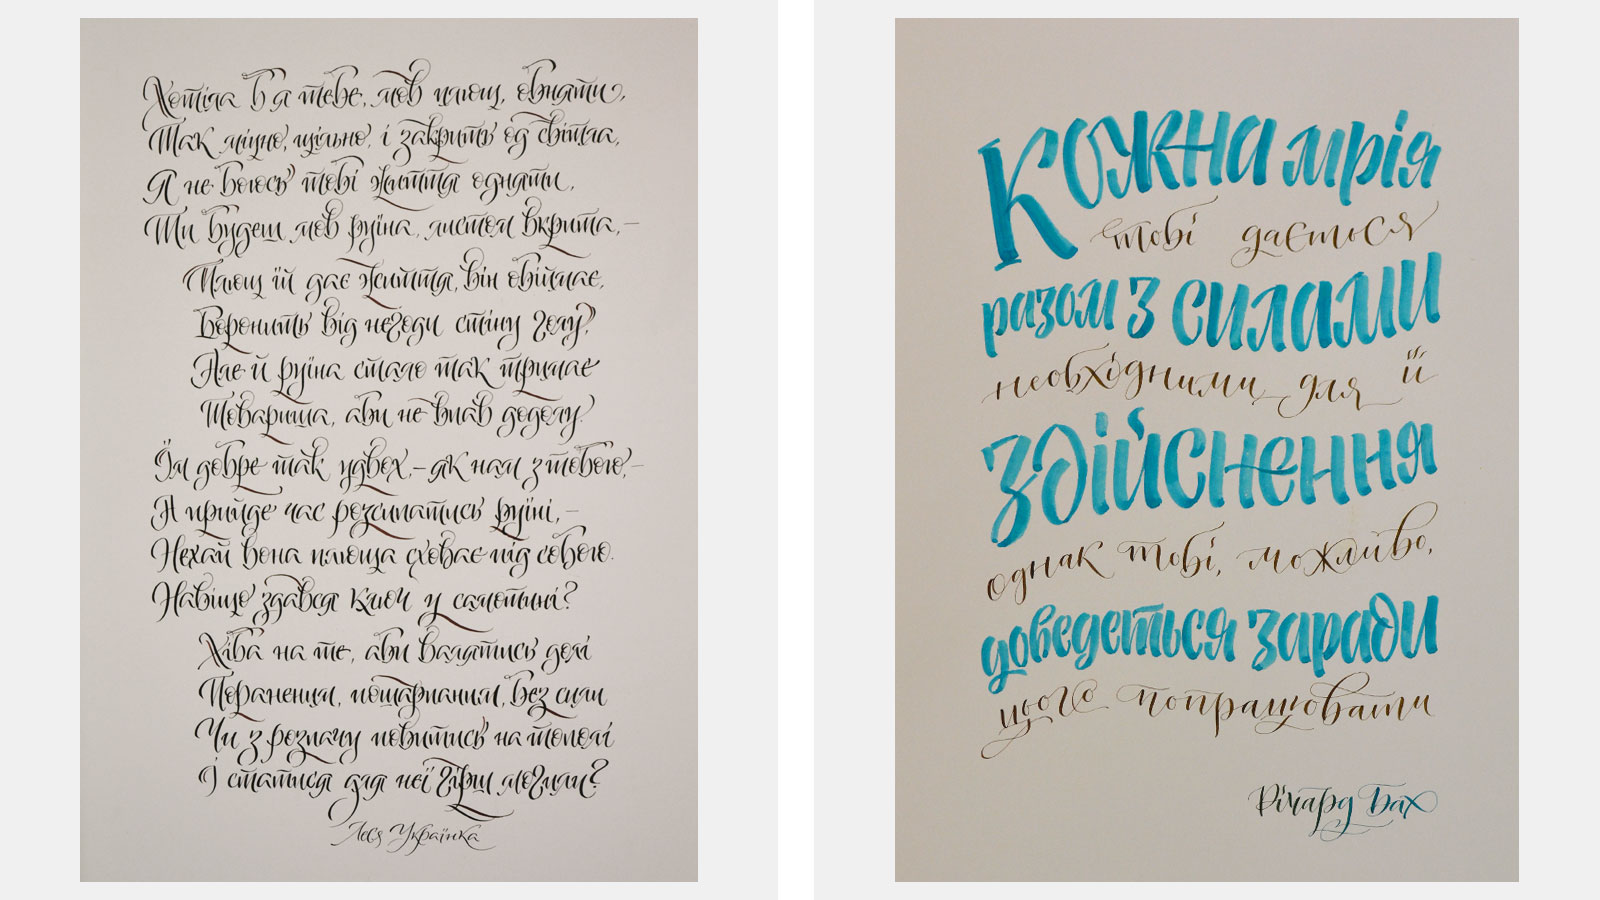 Хотіла б я тебе, мов плющ, обняти,
Так міцно, щільно, і закрить од світла,
Я не боюсь тобі життя одняти,
Ти будеш мов руїна, листом вкрита,–
Плющ їй дає життя, він обіймає,
Боронить від негоди стіну голу,
Але й руїна стало так тримає
Товариша, аби не впав додолу.
Їм добре так удвох,– як нам з тобою,–
А прийде час розсипатись руїні,–
Нехай вона плюща сховає під собою.
Навіщо здався ключ у самотині?
Хіба на те, аби валятись долі
Пораненим, пошарпаним, без сили
Чи з розпачу повитись на тополі
І статися для неї гірш могили?
Леся Українка
Кожна мрія
тобі дається
разом з силами
необхідними для її
здійснення
однак тобі, можливо,
доведеться заради
цього попрацювати
Річард Бах